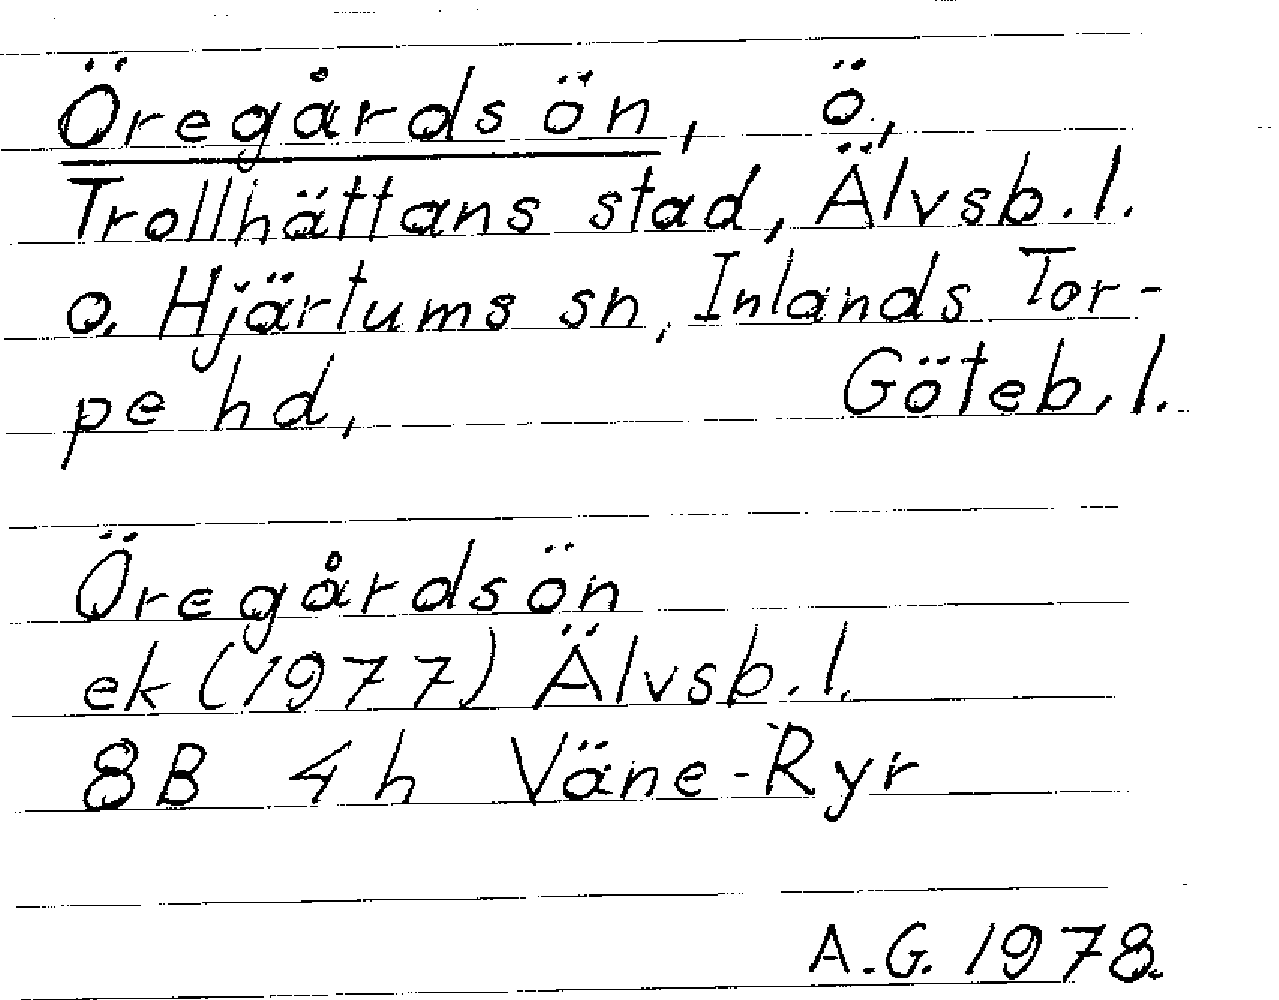 Öregårdsön, ö,
Trollhättans stad, Älvsb.l.
o. Hjärtums sn, Inlands Tor-
pe hd, Göteb.l.
Öregårdsön
ek (1977) Älvsb.l.
8B 4h Väne-Ryr
A.G. 1978.